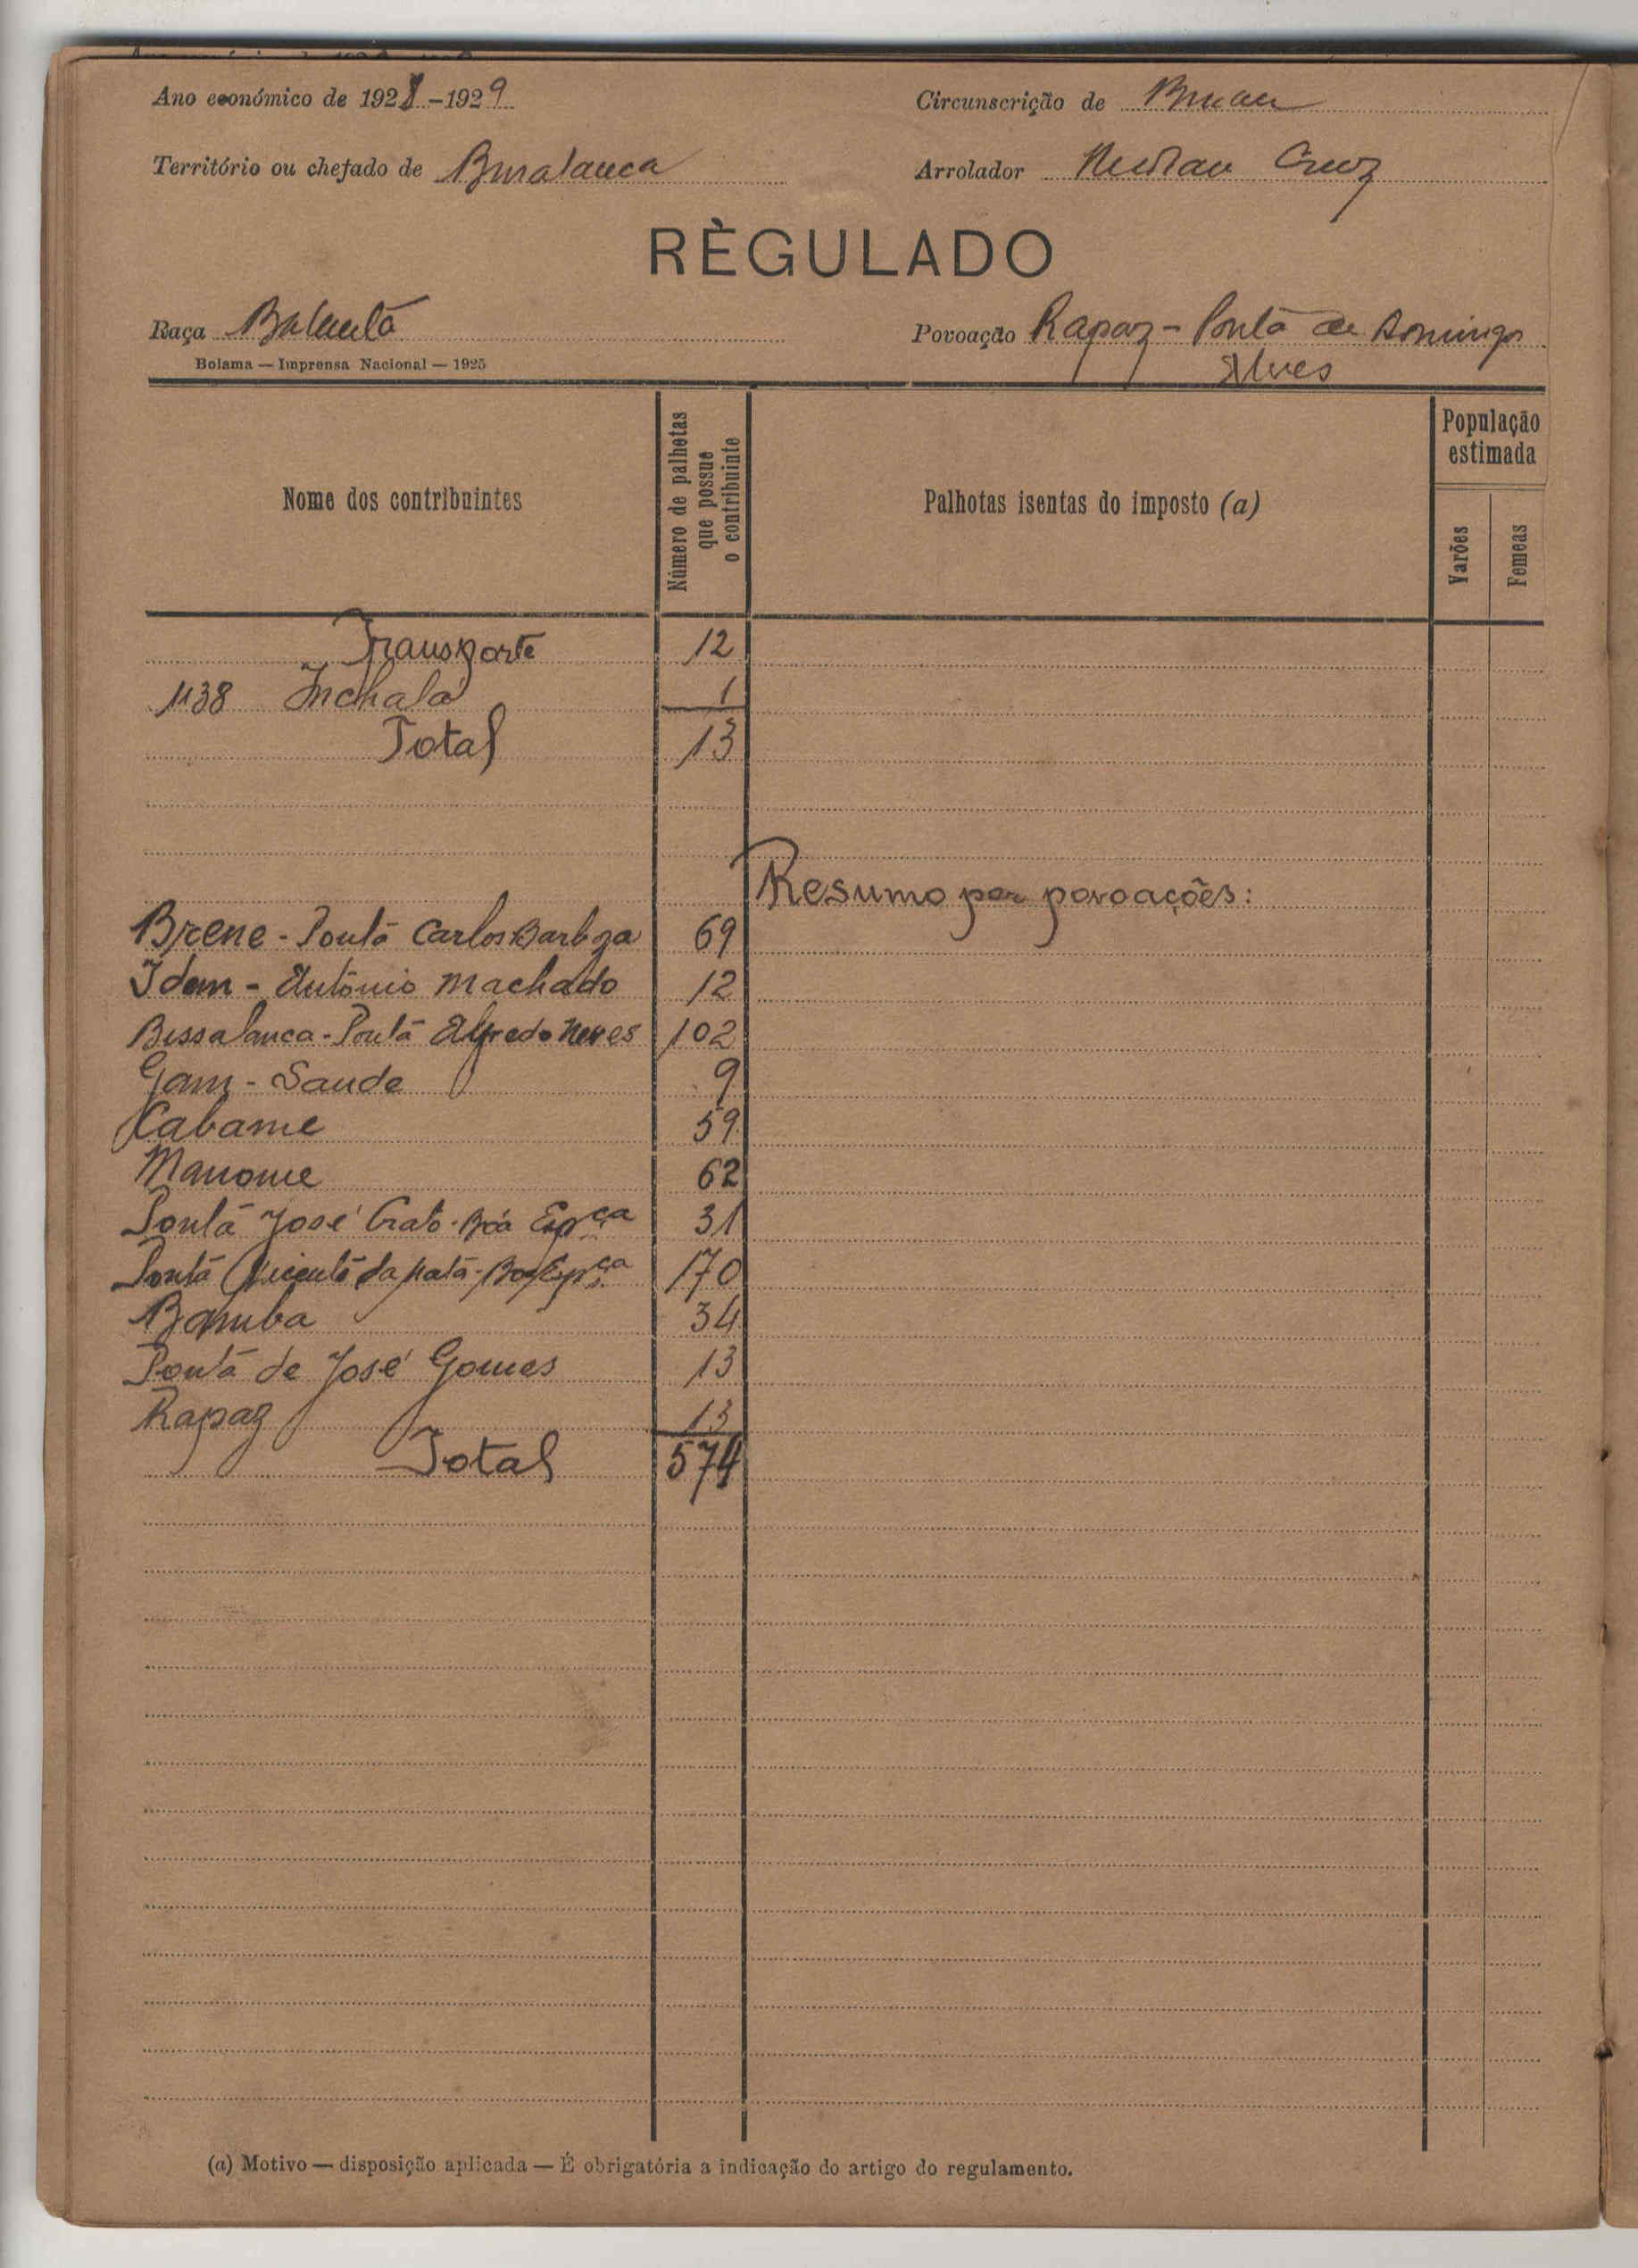 Ano económico de 1928-1929
Circunscrição de Bissau
Território ou chefado de
Arrolador Nicolau Cruz
RÈGULADO
Raça Balanta
Povoação Rapaz - Ponta de Domingos
Alves
Bolama — Imprensa Nacional — 1925
Nome dos contribuintes
Número de palhotas
que possue
o contribuinte
Palhotas isentas do imposto (a)
População
estimada
Varões
Femeas
Transporte 12
1138 Inchala 1
Total 13
Resumo por povoações:
Brene - Ponta Carlos Barboza 69
Idem - António Machado 12
Bissalanca - Ponta Alfredo Neves 102
Gam - Saude 9
Cabame 59
Manome 62
Ponta José Crato - Bôa Espça 31
Ponta Vicente da Mata - Boa Espça 170
Bamba 34
Ponta de José Gomes 13
Rapaz 13
Total 574
(a) Motivo — disposição aplicada — É obrigatória a indicação do artigo do regulamento.